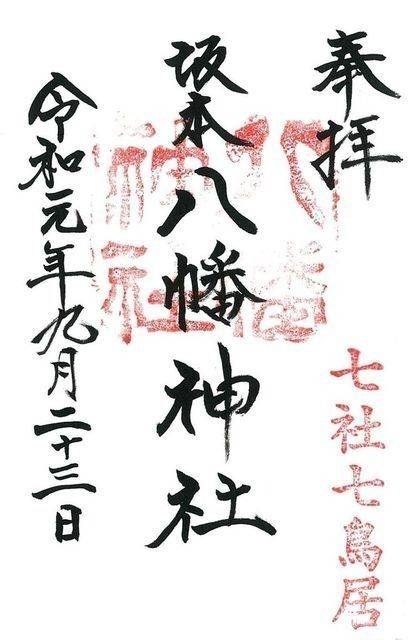 奉拝
七社七鳥居
坂本八幡神社
八幡
神社
令和元年九月二十三日